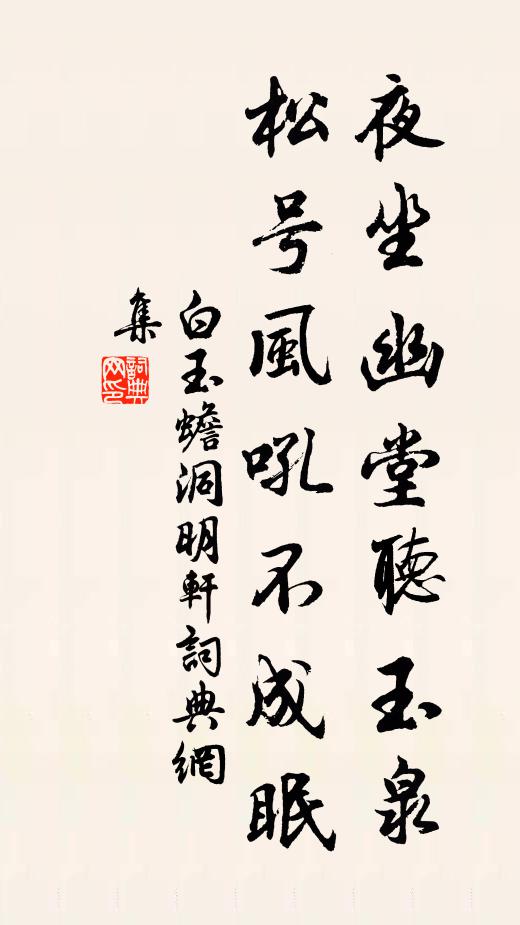 夜坐幽堂聽玉泉
松号風吼不成眠
白玉蟾洞明軒詞典網
集
詞典網印